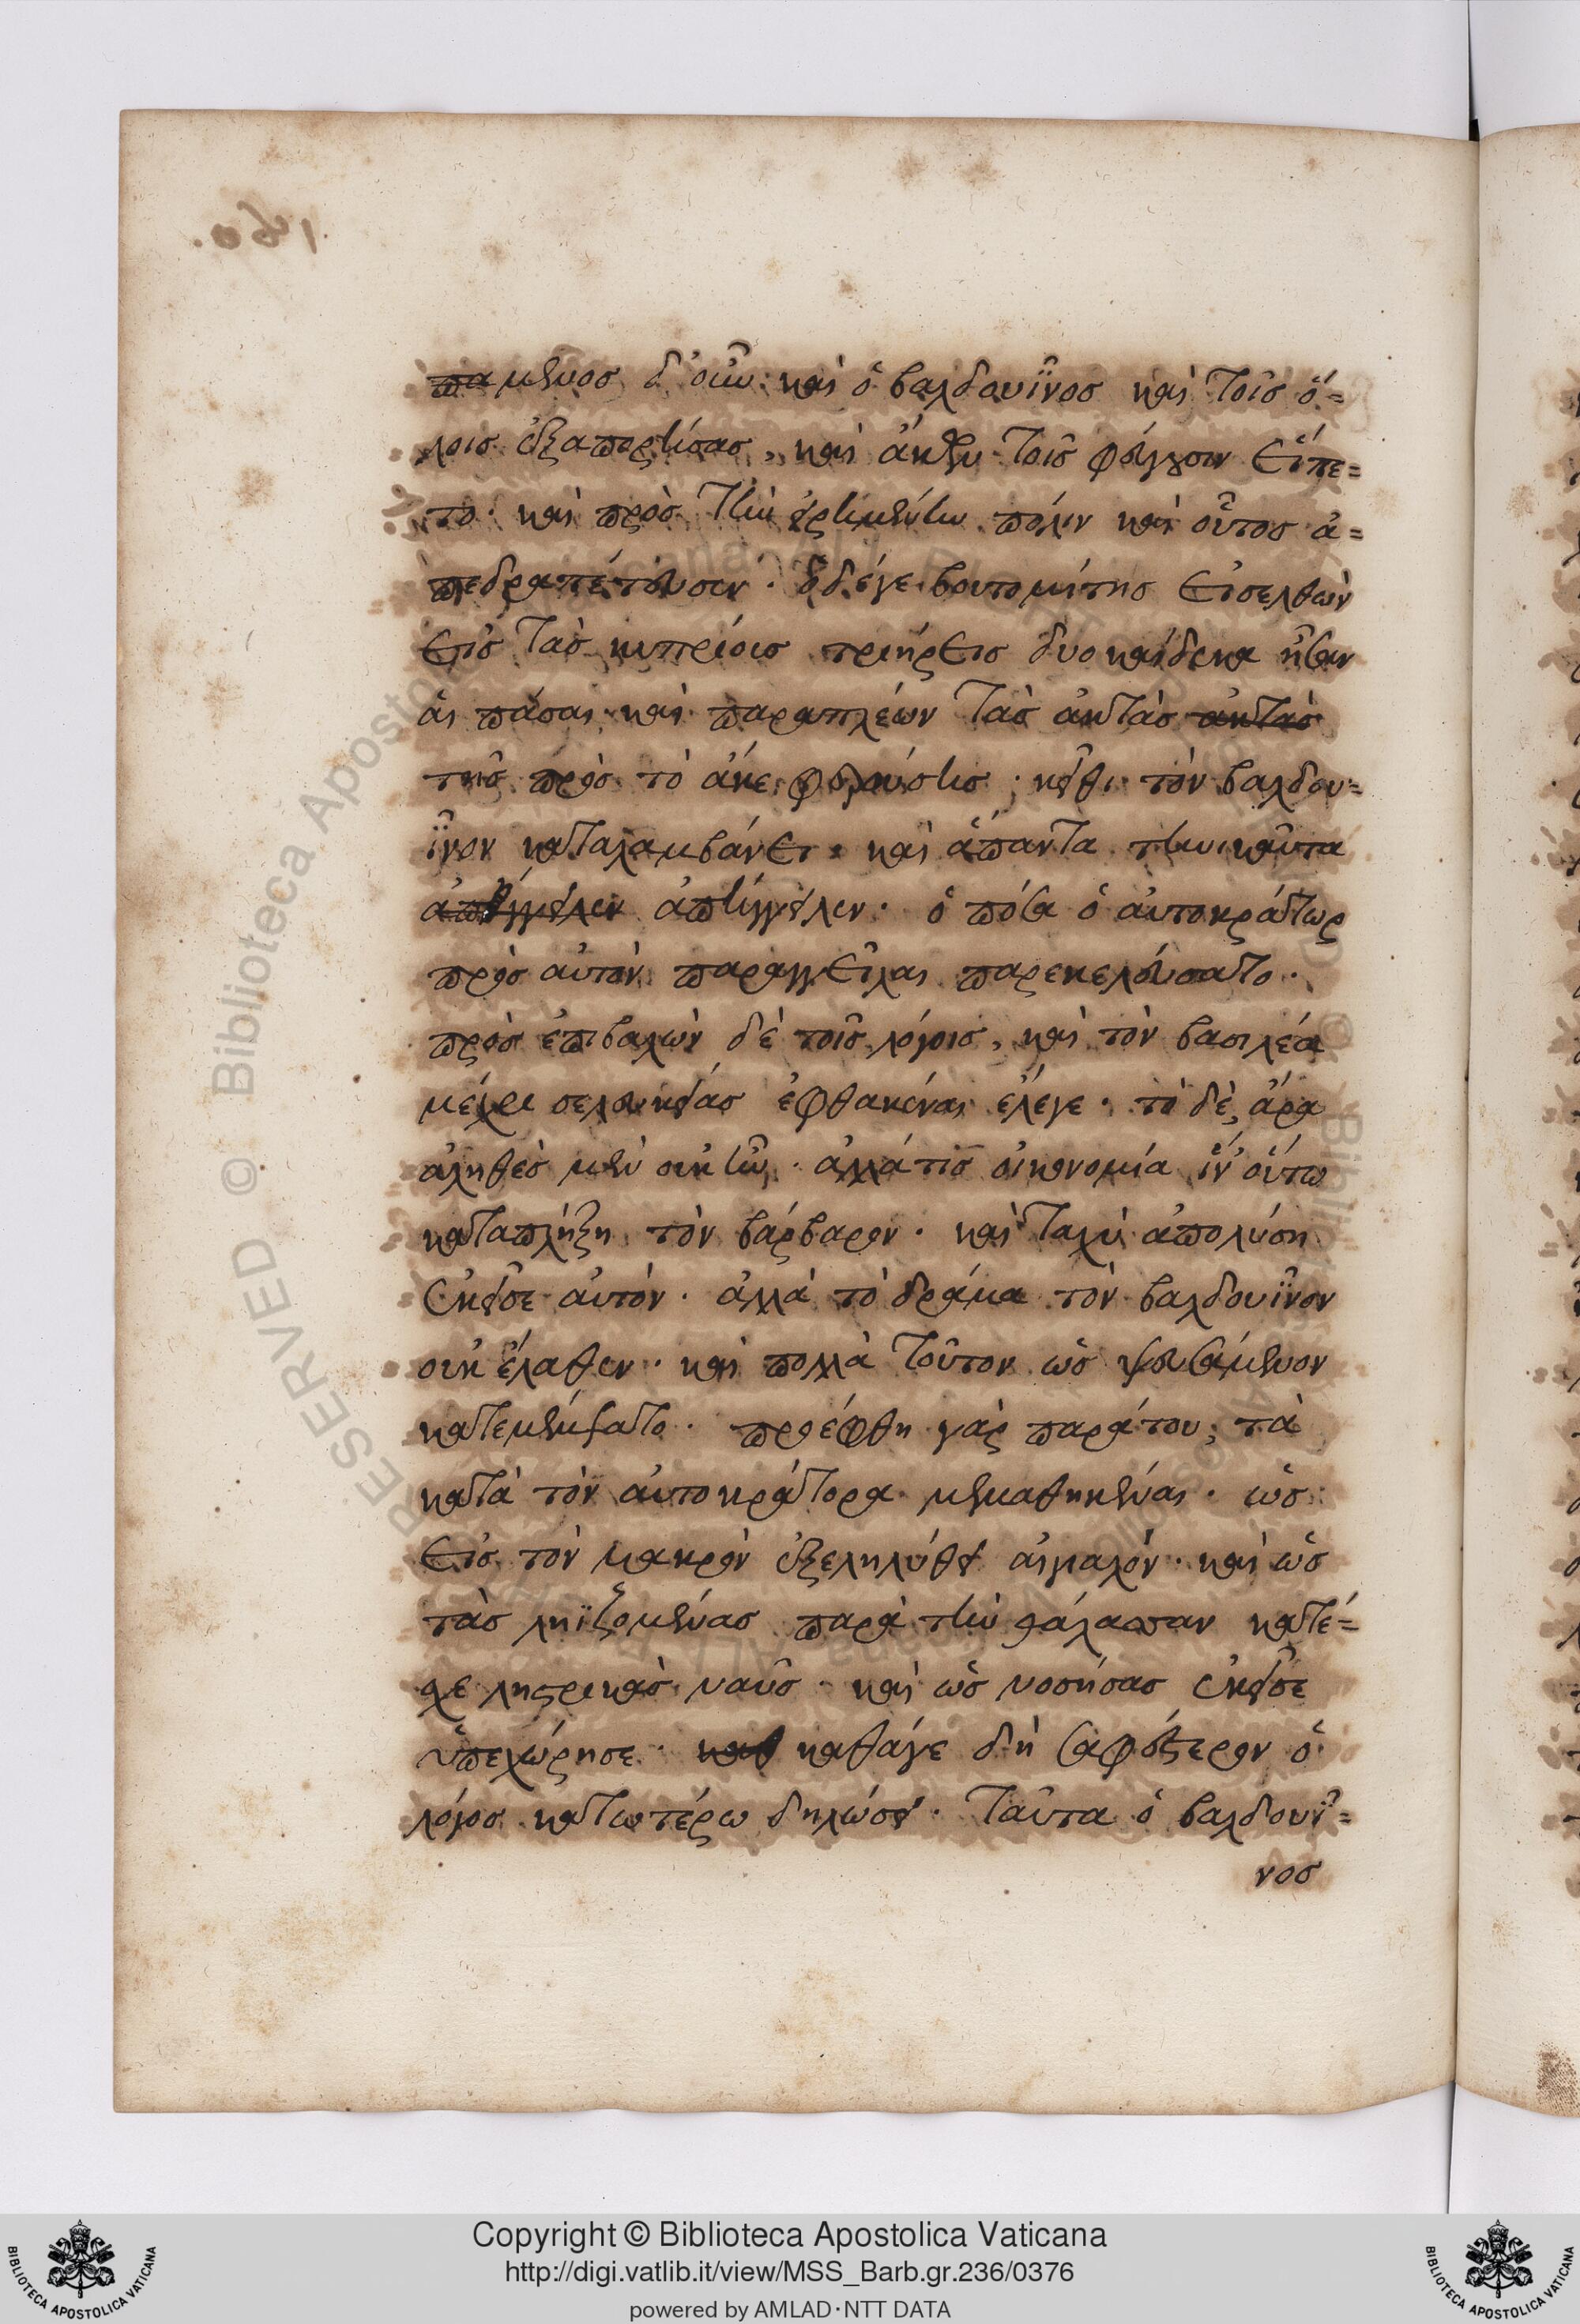 παμενος δ' οὖν καὶ ὁ βαλδουῖνος καὶ τοῖς ὅ=
λοις ἐξαπορήσας, καὶ ἄκων τοῖς φεύγουσιν εἵπε=
το. καὶ πρὸς τὴν εἰρημένην πόλιν καὶ οὗτος ἀ=
πεδραπέτευσεν. ὁ δέγε βουτομίτης εἰσελθὼν
εἰς τὰς κυπρίοις τριήρεις δυοκαίδεκα ἦσαν
αἱ πᾶσαι καὶ παραπλέων τὰς ἀκτὰς ἀκτὰς
τῆς πρὸς τὸ ἄκε φερούσης. κεῖθι τὸν βαλδου=
ῖνον καταλαμβάνει. καὶ ἅπαντα τηνικαῦτα
ἀπήγγειλεν ἀπήγγειλεν. ὁπόσα ὁ αὐτοκράτωρ
πρὸς αὐτὸν παραγγεῖλαι παρεκελεύσατο.
πρὸς ἐπιβαλὼν δὲ τοῖς λόγοις, καὶ τὸν βασιλέα
μέχρι σελευκείας ἐφθακέναι ἔλεγε. τὸ δὲ ἄρα
ἀληθὲς μὲν οὐκ ἦν. ἀλλά τις οἰκονομία ἵν' οὕτω
καταπλήξῃ τὸν βάρβαρον. καὶ ταχὺ ἀπολύσῃ
ἐκεῖσε αὐτόν. ἀλλὰ τὸ δράμα τὸν βαλδουῖνον
οὐκ ἔλαθεν. καὶ πολλὰ τοῦτον ὡς ψευσάμενον
κατεμέμψατο. προέφθη γὰρ παρά του, τὰ
κατὰ τὸν αὐτοκράτορα μεμαθηκέναι. ὡς
εἰς τὸν μακρὸν ἐξεληλύθει αἰγιαλόν. καὶ ὡς
τὰς ληϊζομένας παρὰ τὴν θάλασσαν κατέ=
χε λῃστρικὰς ναῦς. καὶ ὡς νοσήσας ἐκεῖσε
ὑπεχώρησε. καθ καθάγε δὴ σαφέστερον ὁ
λόγος κατωτέρω δηλώσει. ταῦτα ὁ βαλδουῖ=
νος
Copyright © Biblioteca Apostolica Vaticana
http://digi.vatlib.it/view/MSS_Barb.gr.236/0376
powered by AMLAD·NTT DATA